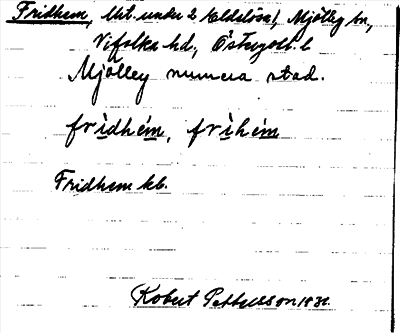 Fridhem, lht. under 2 Eldslösa, Mjölby sn,
Vifolka hd, Östergötl. l
Mjölby numera stad.
fridhém, frihém
Fridhem kb.
Robert Pettersson 1932.